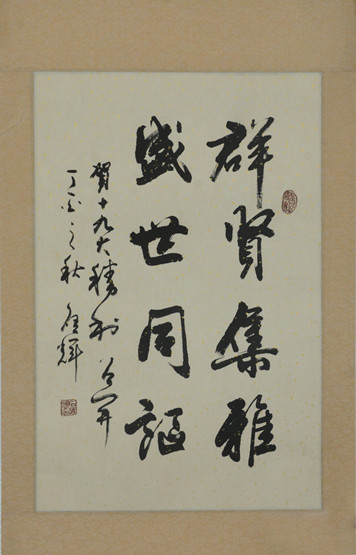 群賢集雅
盛世同謳
賀十九大勝利召開
丁酉之秋 啓輝